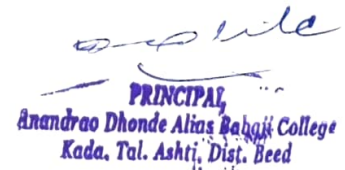 PRINCIPAL,
Anandrao Dhonde Alias Babaji College
Kada, Tal. Ashti, Dist. Beed